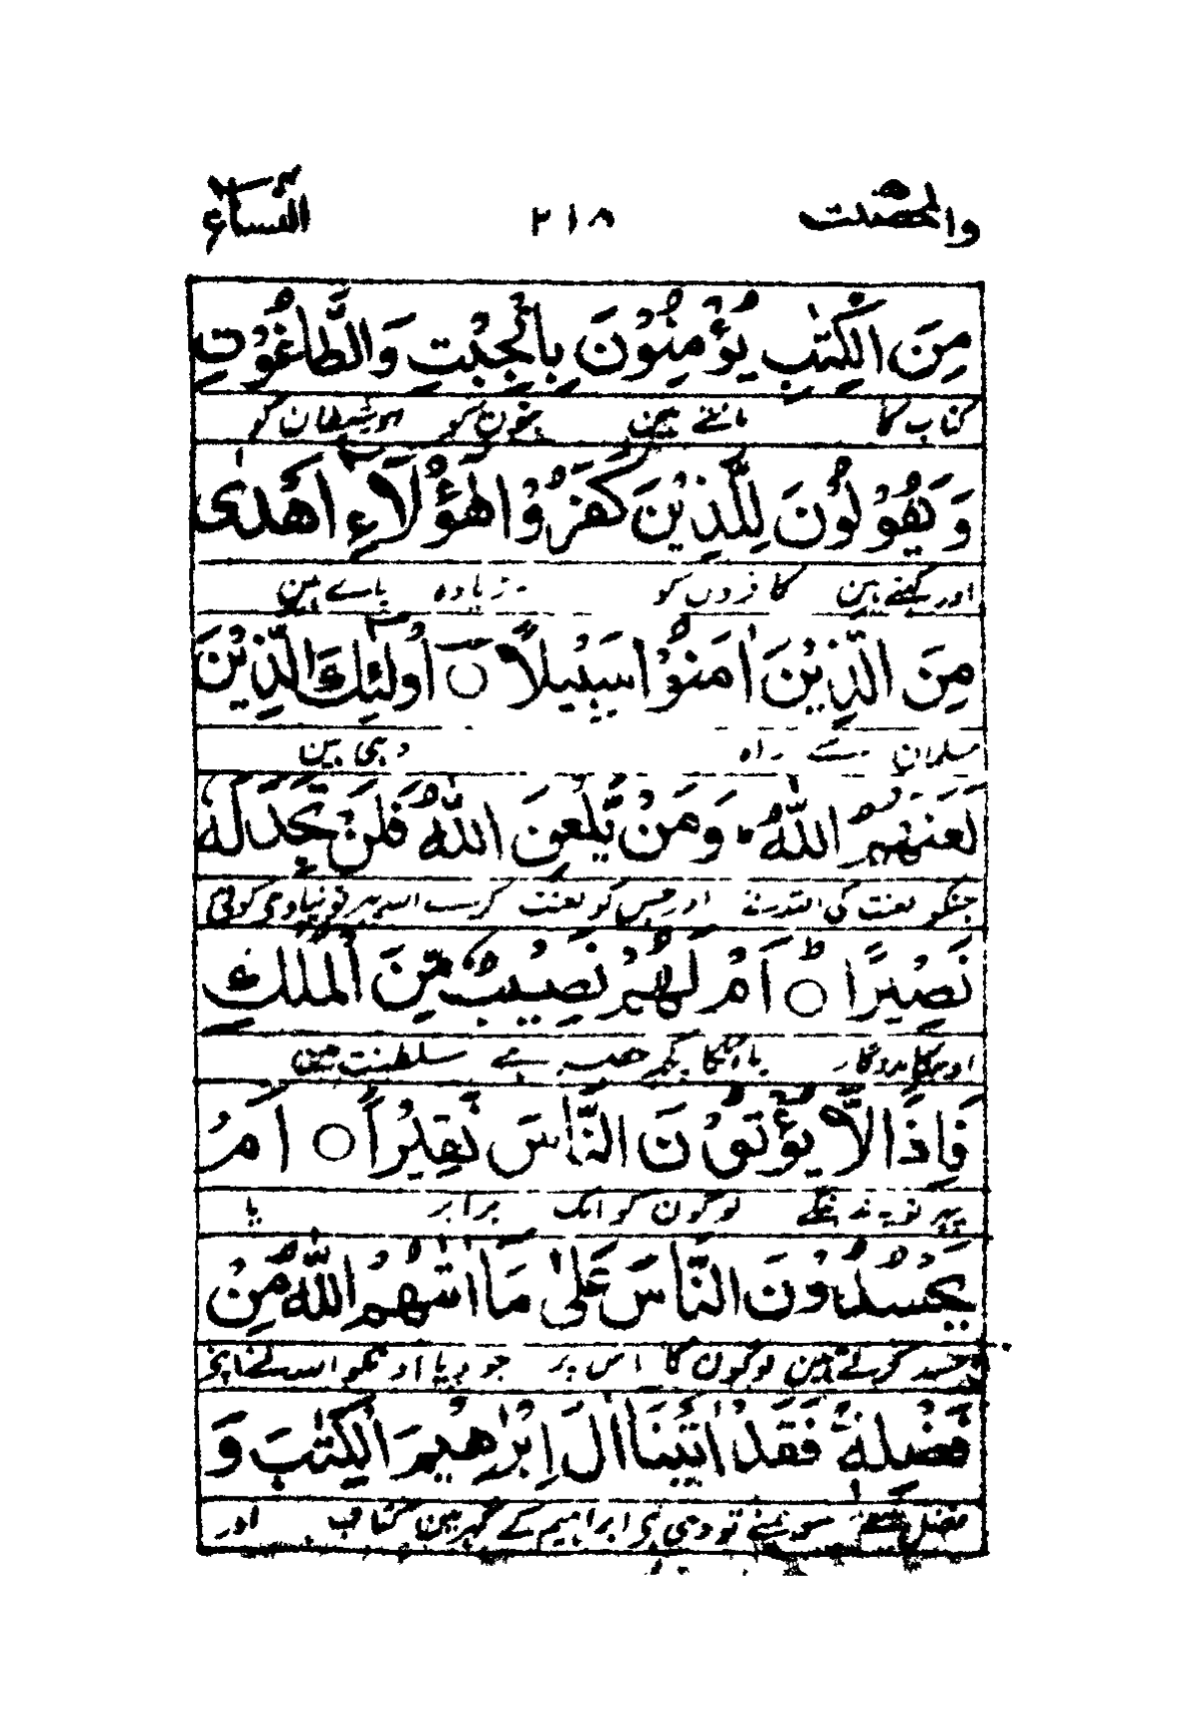 والمحصنت ٢١٨ النساء
مِنَ الْكِتٰبِ يُؤْمِنُوْنَ بِالْجِبْتِ وَالطَّاغُوْتِ
کتاب کا مانتے ہین بتون کو اور شیطان کو
وَيَقُوْلُوْنَ لِلَّذِيْنَ كَفَرُوْا هٰٓؤُلَآءِ اَهْدٰى
اور کہتے ہین کافرون کو زیادہ پائے ہین
مِنَ الَّذِيْنَ اٰمَنُوْا سَبِيْلًا ○ اُولٰٓئِكَ الَّذِيْنَ
مسلمان سے راہ وہی ہین
لَعَنَهُمُ اللّٰهُ ؕ وَمَنْ يَّلْعَنِ اللّٰهُ فَلَنْ تَجِدَ لَهٗ
جنکو لعنت کی اللہ نے اور جس کو لعنت کرے اللہ پھر تو نپاوی کوئی
نَصِيْرًا ○ؕ اَمْ لَهُمْ نَصِيْبٌ مِّنَ الْمُلْكِ
اوسکا مددگار یا انکا کچھ حصہ ہے سلطنت مین
فَاِذًا لَّا يُؤْتُوْنَ النَّاسَ نَقِيْرًا ○ اَمْ
پھر تو یہ ندینگے لوگون کو ایک برابر یا
يَحْسُدُوْنَ النَّاسَ عَلٰى مَآ اٰتٰىهُمُ اللّٰهُ مِنْ
حسد کرتے ہین لوگون کا اس پر جو دیا اونکو اللہ نے اپنے
فَضْلِهٖ ۚ فَقَدْ اٰتَيْنَآ اٰلَ اِبْرٰهِيْمَ الْكِتٰبَ وَ
فضل سے سو ہمنے تو دی ہی ابراہیم کے گھر مین کتاب اور